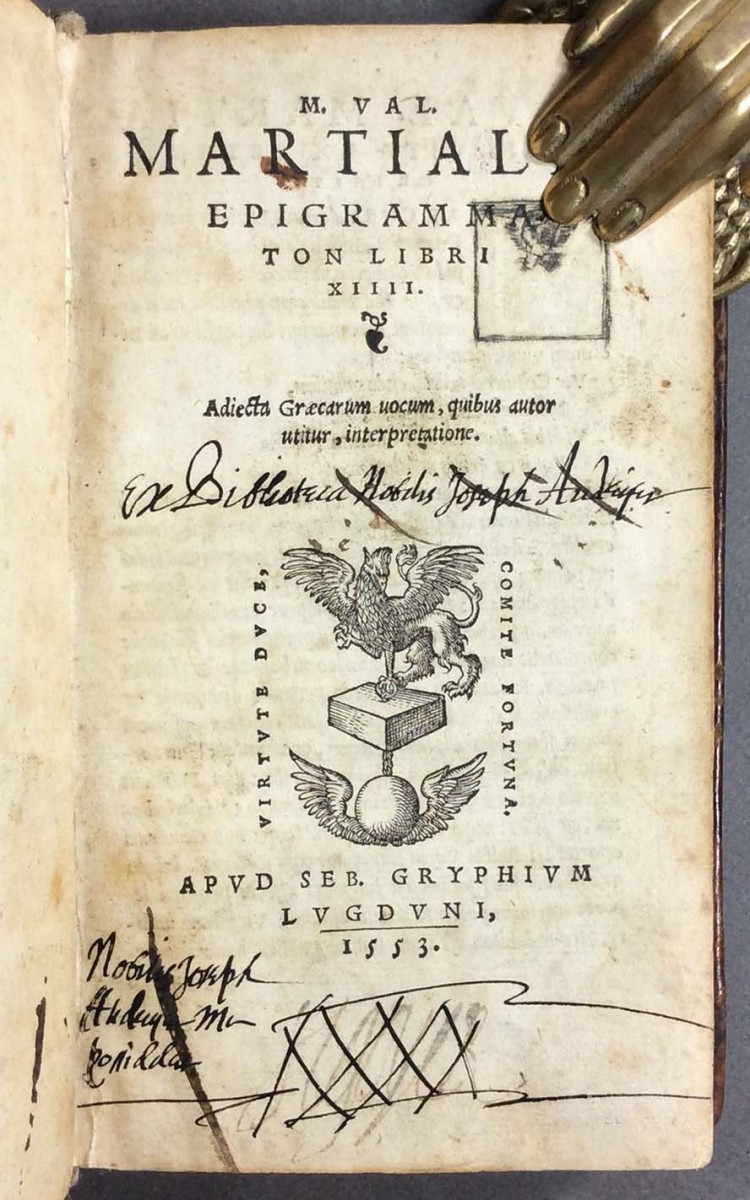 M. VAL.
MARTIAL
EPIGRAMMA
TON LIBRI
XIIII.
Adiecta Græcarum uocum, quibus autor
utitur, interpretatione.
Ex Biblioteca Nobilis Joseph
VIRTVTE DVCE,
COMITE FORTVNA.
APVD SEB. GRYPHIVM
LVGDVNI,
1553.
Nobilis Joseph